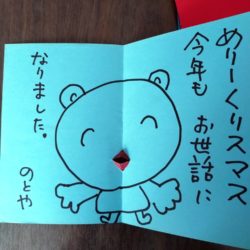 めりーくりスマス
今年も
お世話に
なりました。
のとや